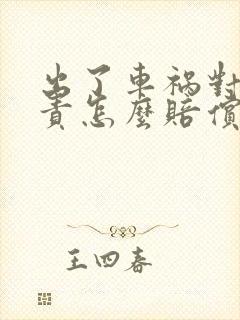 出了車禍對
責怎麽賠償
王四春